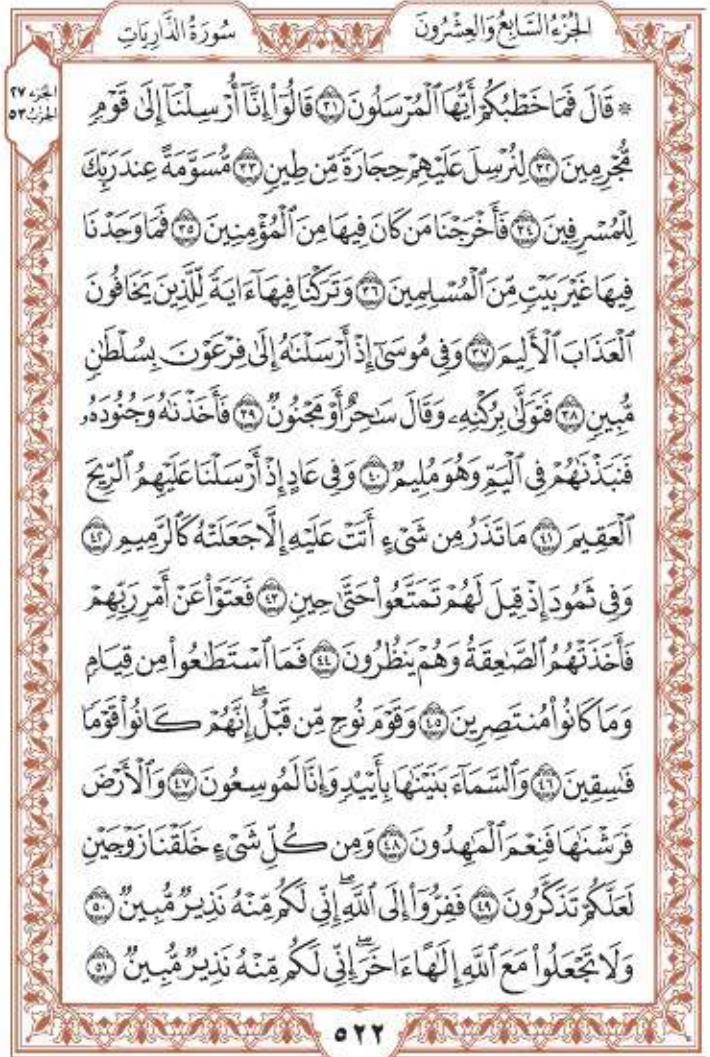 سُورَةُ الذَّارِيَاتِ
الجُزْءُ السَّابِعُ وَالعِشْرُونَ
الجزء ٢٧
الحزب ٥٣
۞ قَالَ فَمَا خَطْبُكُمْ أَيُّهَا ٱلْمُرْسَلُونَ ٣١ قَالُوٓاْ إِنَّآ أُرْسِلْنَآ إِلَىٰ قَوْمٖ
مُّجْرِمِينَ ٣٢ لِنُرْسِلَ عَلَيْهِمْ حِجَارَةٗ مِّن طِينٖ ٣٣ مُّسَوَّمَةً عِندَ رَبِّكَ
لِلْمُسْرِفِينَ ٣٤ فَأَخْرَجْنَا مَن كَانَ فِيهَا مِنَ ٱلْمُؤْمِنِينَ ٣٥ فَمَا وَجَدْنَا
فِيهَا غَيْرَ بَيْتٖ مِّنَ ٱلْمُسْلِمِينَ ٣٦ وَتَرَكْنَا فِيهَآ ءَايَةٗ لِّلَّذِينَ يَخَافُونَ
ٱلْعَذَابَ ٱلْأَلِيمَ ٣٧ وَفِي مُوسَىٰٓ إِذْ أَرْسَلْنَٰهُ إِلَىٰ فِرْعَوْنَ بِسُلْطَٰنٖ
مُّبِينٖ ٣٨ فَتَوَلَّىٰ بِرُكْنِهِۦ وَقَالَ سَٰحِرٌ أَوْ مَجْنُونٞ ٣٩ فَأَخَذْنَٰهُ وَجُنُودَهُۥ
فَنَبَذْنَٰهُمْ فِي ٱلْيَمِّ وَهُوَ مُلِيمٞ ٤٠ وَفِي عَادٍ إِذْ أَرْسَلْنَا عَلَيْهِمُ ٱلرِّيحَ
ٱلْعَقِيمَ ٤١ مَا تَذَرُ مِن شَيْءٍ أَتَتْ عَلَيْهِ إِلَّا جَعَلَتْهُ كَٱلرَّمِيمِ ٤٢
وَفِي ثَمُودَ إِذْ قِيلَ لَهُمْ تَمَتَّعُواْ حَتَّىٰ حِينٖ ٤٣ فَعَتَوْاْ عَنْ أَمْرِ رَبِّهِمْ
فَأَخَذَتْهُمُ ٱلصَّٰعِقَةُ وَهُمْ يَنظُرُونَ ٤٤ فَمَا ٱسْتَطَٰعُواْ مِن قِيَامٖ
وَمَا كَانُواْ مُنتَصِرِينَ ٤٥ وَقَوْمَ نُوحٖ مِّن قَبْلُۖ إِنَّهُمْ كَانُواْ قَوْمٗا
فَٰسِقِينَ ٤٦ وَٱلسَّمَآءَ بَنَيْنَٰهَا بِأَيْيْدٖ وَإِنَّا لَمُوسِعُونَ ٤٧ وَٱلْأَرْضَ
فَرَشْنَٰهَا فَنِعْمَ ٱلْمَٰهِدُونَ ٤٨ وَمِن كُلِّ شَيْءٍ خَلَقْنَا زَوْجَيْنِ
لَعَلَّكُمْ تَذَكَّرُونَ ٤٩ فَفِرُّوٓاْ إِلَى ٱللَّهِۖ إِنِّي لَكُم مِّنْهُ نَذِيرٞ مُّبِينٞ ٥٠
وَلَا تَجْعَلُواْ مَعَ ٱللَّهِ إِلَٰهًا ءَاخَرَۖ إِنِّي لَكُم مِّنْهُ نَذِيرٞ مُّبِينٞ ٥١
٥٢٢